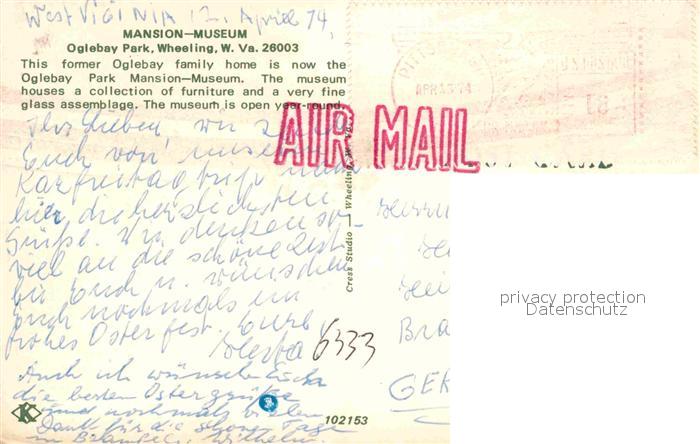 West VIGINIA 12. April 74,
MANSION—MUSEUM
Oglebay Park, Wheeling, W. Va. 26003
This former Oglebay family home is now the
Oglebay Park Mansion—Museum. The museum
houses a collection of furniture and a very fine
glass assemblage. The museum is open year-round.
Ihr Lieben, wir
Euch von unserem
Karfreitagtrip
hier, die herzlichsten
Grüße. Wir denken so
viel an die schöne Zeit
bei Euch u. wünschen
Euch nochmals ein
frohes Osterfest. Eure
Herta
Auch ich wünsche Euch
die besten Ostergrüße
und nochmals vielen
Dank für die schönen Tage
in Wilhelm.
AIR MAIL
APR 13 74
Cress Studio — Wheeling, W. Va.
Herrn
Bra
GER
6333
K
102153
privacy protection
Datenschutz